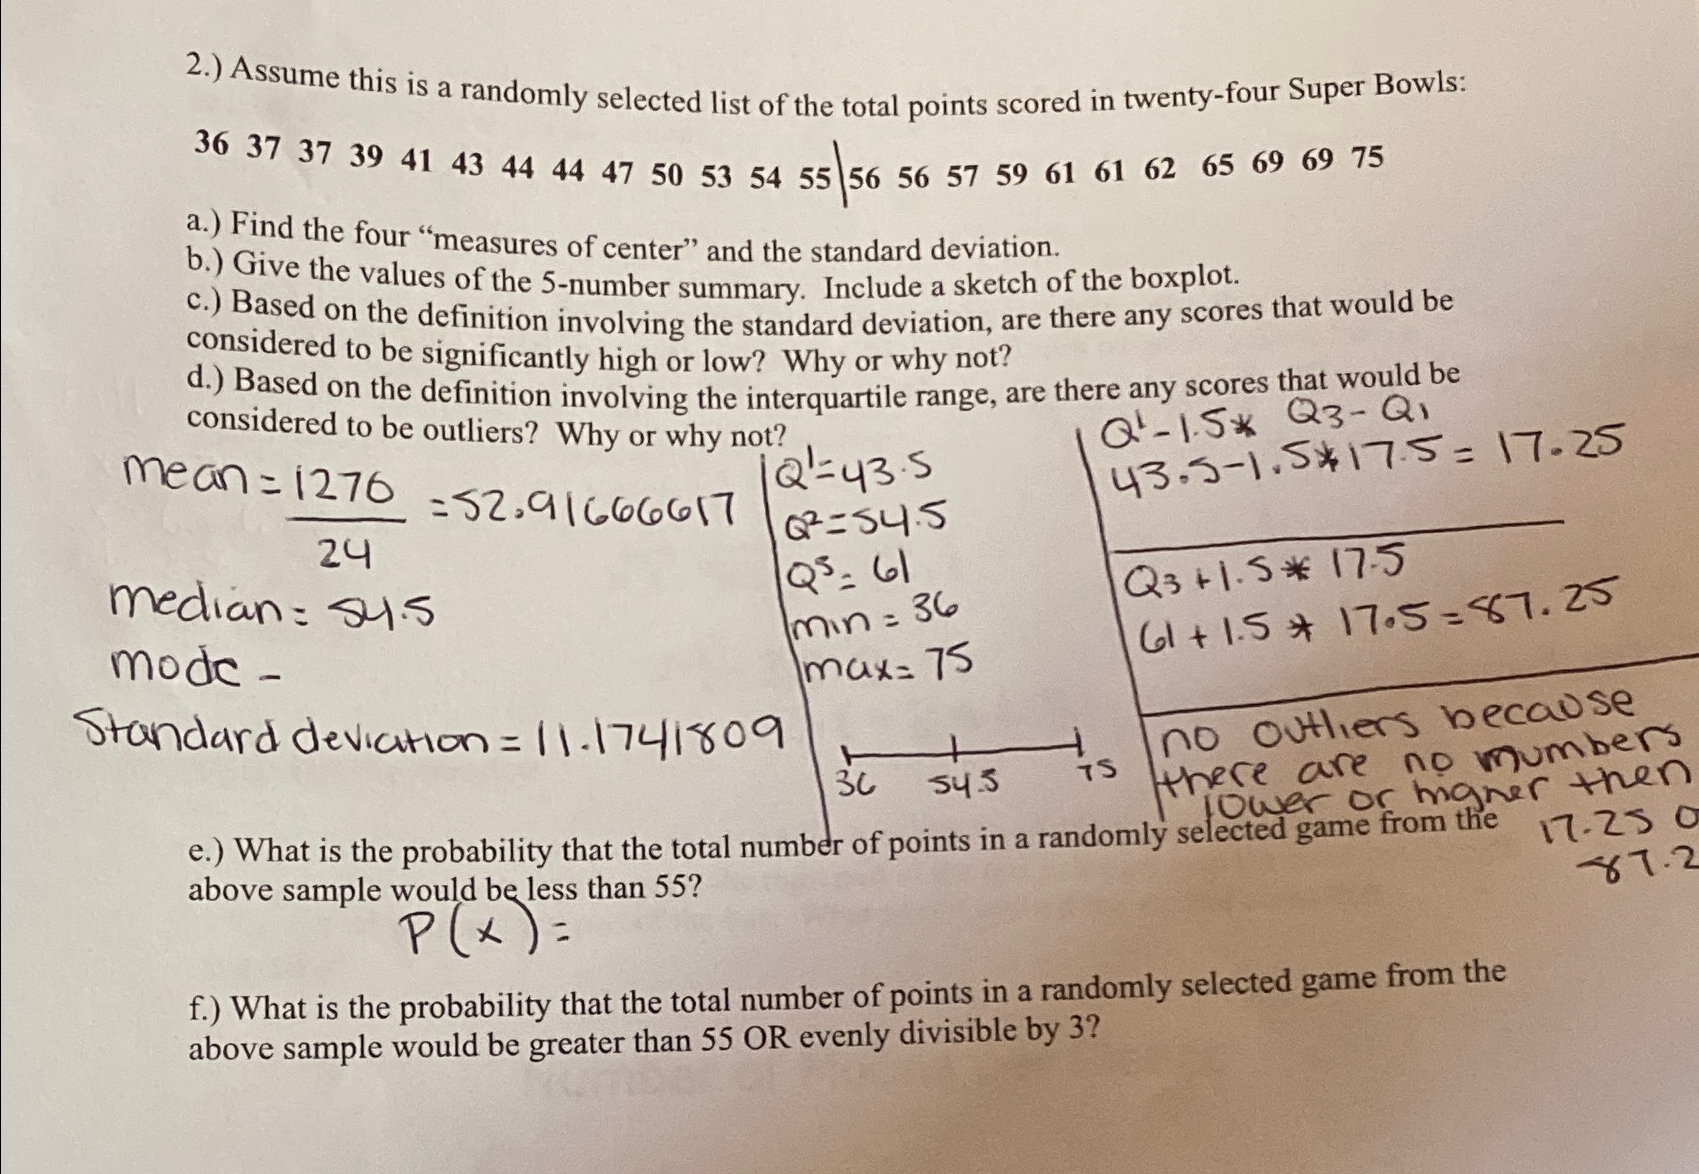 2.) Assume this is a randomly selected list of the total points scored in twenty-four Super Bowls:
36 37 37 39 41 43 44 44 47 50 53 54 55 56 56 57 59 61 61 62 65 69 69 75
a.) Find the four “measures of center” and the standard deviation.
b.) Give the values of the 5-number summary. Include a sketch of the boxplot.
c.) Based on the definition involving the standard deviation, are there any scores that would be
considered to be significantly high or low? Why or why not?
d.) Based on the definition involving the interquartile range, are there any scores that would be
considered to be outliers? Why or why not?
mean = 1270
24
= 52.91666617
median = 54.5
mode -
Standard deviation = 11.1741809
Q1 = 43.5
Q2 = 54.5
Q3 = 61
min = 36
max = 75
36 54.5 75
Q1 - 1.5* Q3 - Q1
43.5 - 1.5 * 17.5 = 17.25
Q3 + 1.5 * 17.5
61 + 1.5 * 17.5 = 87.25
no outliers because
there are no numbers
lower or higher then
17.25 o
87.2
e.) What is the probability that the total number of points in a randomly selected game from the
above sample would be less than 55?
P(x) =
f.) What is the probability that the total number of points in a randomly selected game from the
above sample would be greater than 55 OR evenly divisible by 3?